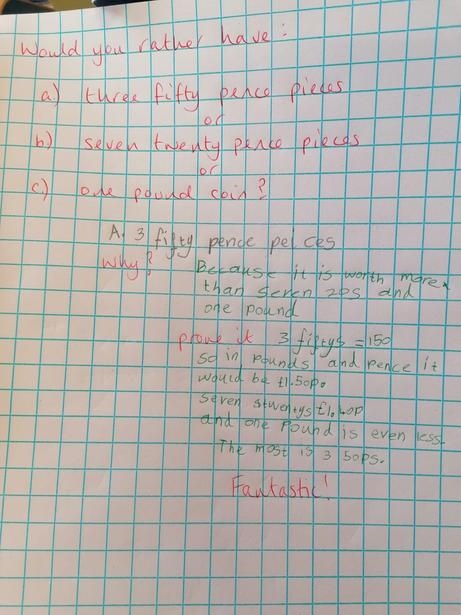 Would you rather have:
a) three fifty pence pieces
or
b) seven twenty pence pieces
or
c) one pound coin?
A. 3 fifty pence peices
Why? Because it is worth more
than seven 20s and
one pound
prove it 3 fiftys = 150
so in pounds and pence it
would be £1.50p.
seven stwentys £1.40p
and one pound is even less.
The most is 3 50ps.
Fantastic!